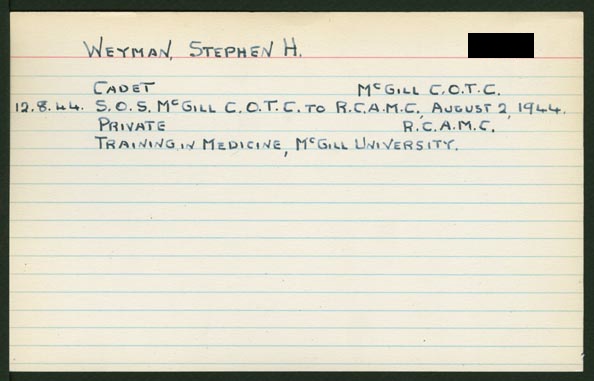 WEYMAN, STEPHEN H.
CADET McGILL C.O.T.C.
12.8.44. S.O.S. McGILL C.O.T.C. TO R.C.A.M.C., AUGUST 2, 1944.
PRIVATE R.C.A.M.C.
TRAINING IN MEDICINE, McGILL UNIVERSITY.